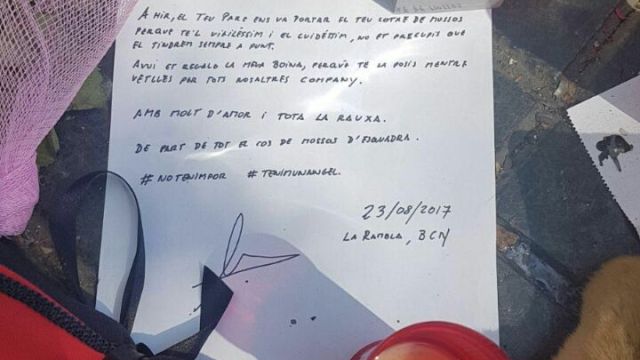 AHIR, EL TEU PARE ENS VA PORTAR EL TEU COTXE DE MOSSOS
PERQUE TE'L VIGILÉSSIM I EL CUIDÉSSIM, NO ET PREOCUPIS QUE
EL TINDREM SEMPRE A PUNT.
AVUI ET REGALO LA MEVA BOINA, PERQUÈ TE LA POSIS MENTRE
VETLLES PER TOTS NOSALTRES COMPANY.
AMB MOLT D'AMOR I TOTA LA RAUXA.
DE PART DE TOT EL COS DE MOSSOS D'ESQUADRA.
#NOTENIMPOR #TENIMUNANGEL.
23/08/2017
LA RAMBLA, BCN